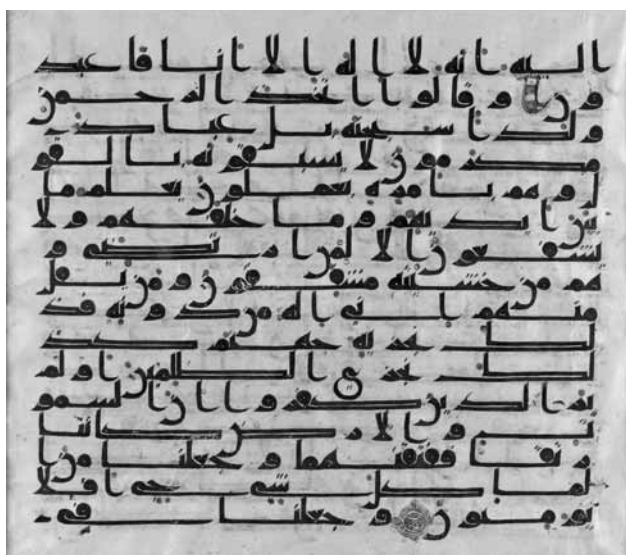 اليه انه لا اله الا انا فاعبد
ون وقالوا اتخذ الرحمن
ولدا سبحنه بل عباد
مكرمون لا يسبقونه بالقو
ل وهم بامره يعملون يعلم ما
بين ايديهم وما خلفهم ولا
يشفعون الا لمن ارتضى و
هم من خشيته مشفقون ومن يقل
منهم انى اله من دونه فذ
لك نجزيه جهنم كذ
لك نجزى الظلمين اولم
ير الذين كفروا ان السمو
ت والارض كانتا
رتقا ففتقنهما وجعلنا من ا
لما كل شى حى افلا
يومنون وجعلنا فى